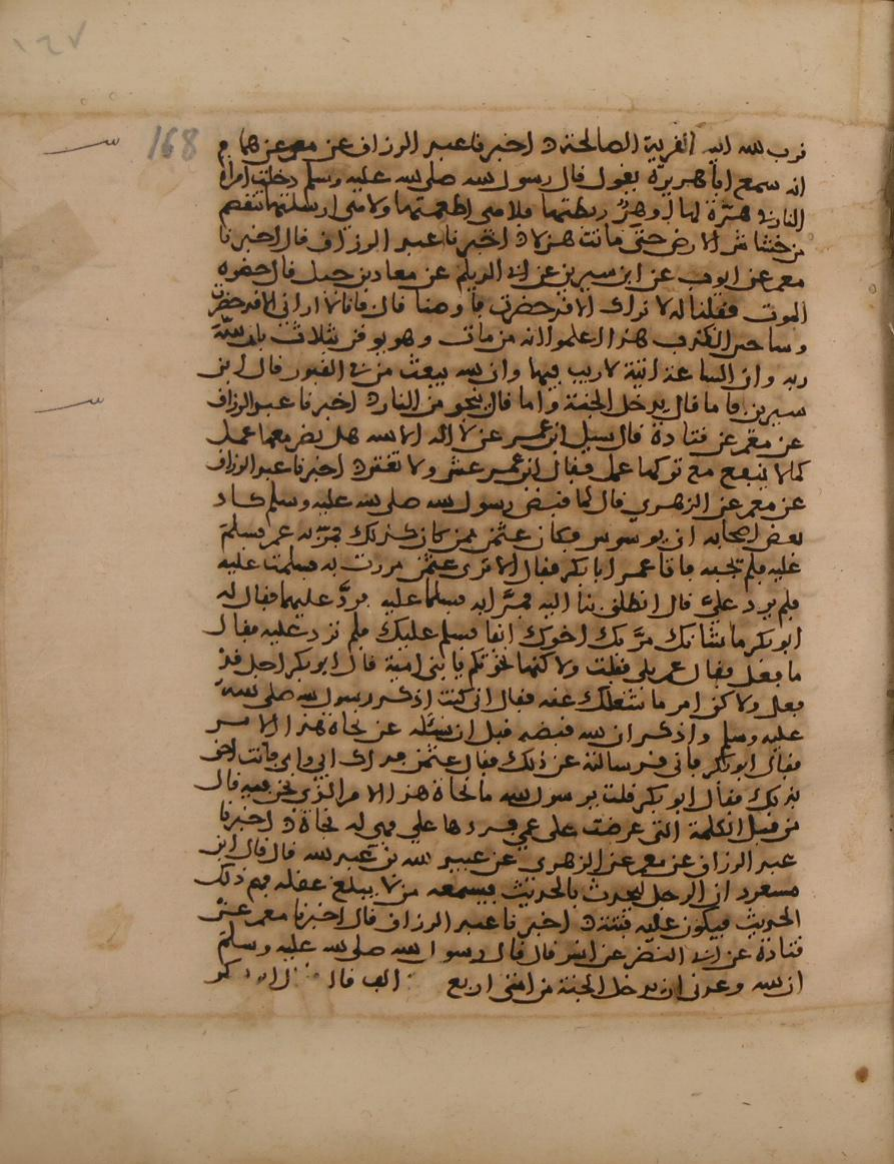 ١٦٧
168
قرب الله اليه القرية الصالحة ه اخبرنا عبد الرزاق عن معمر عن همام
انه سمع ابا هريرة يقول قال رسول الله صلى الله عليه وسلم دخلت امراة
النار في هرة لها او هر ربطتها فلا هي اطعمتها ولا هي ارسلتها تقضم
من خشاش الارض حتى ماتت هزلا ه اخبرنا عبد الرزاق قال اخبرنا
معمر عن ايوب عن ابن سيرين عن ابي الديلم عن معاذ بن جبل قال حضره
الموت فقلنا له لا نراك الا قد حضرت فاوصنا قال فانا لا اراني الا قد حضرت
وساحين الكذب هذا اعلموا انه من مات وهو يوقن بثلاث بان الله
ربه وان الساعة اتية لا ريب فيها وان الله يبعث من في القبور قال ابن
سيرين فاما قال يدخل الجنة واما قال ينجو من النار ه اخبرنا عبد الرزاق
عن معمر عن قتادة قال سيل ابن عمر عن لا اله الا الله هل يضر معها عمل
كما لا ينفع مع تركها عمل فقال ابن عمر عش ولا تغتر ه اخبرنا عبد الرزاق
عن معمر عن الزهري قال لما قبض رسول الله صلى الله عليه وسلم كاد
بعض اصحابه ان يوسوس فكان عثمن ممن كان كذلك فمر به عمر فسلم
عليه فلم يجبه فاتا عمر ابا بكر فقال الا ترى عثمن مررت به فسلمت عليه
فلم يرد علي قال انطلق بنا اليه فمرا به فسلما عليه فرد عليهما فقال له
ابو بكر ما شانك مر بك اخوك انفا فسلم عليك فلم ترد عليه فقال
ما فعل فقال عمر بلى فعلت ولاكنها نخوتكم يا بني امية قال ابو بكر اجل قد
فعل ولاكن امر ما شغلك عنه فقال اني كنت اذكر رسول الله صلى الله
عليه وسلم واذكر ان الله قبضه قبل ان نسئله عن نجاة هذا الامر
فقال ابو بكر فاني قد سالته عن ذلك فقال عثمن فداك ابي وامي فانت احق
بذلك فقال ابو بكر قلت يرسول الله ما نجاة هذا الامر الذي نحن فيه قال
من قبل الكلمة التي عرضت على عمي فردها علي فهي له نجاة ه اخبرنا
عبد الرزاق عن معمر عن الزهري عن عبيد الله بن عبد الله قال قال ابن
مسعود ان الرجل ليحدث بالحديث فيسمعه من لا يبلغ عقله فهم ذلك
الحديث فيكون عليه فتنة ه اخبرنا عبد الرزاق قال اخبرنا معمر عن
قتادة عن ابي النضر عن انس قال قال رسول الله صلى الله عليه وسلم
ان الله وعدني ان يدخل الجنة من امتي اربع الف قال ابو بكر